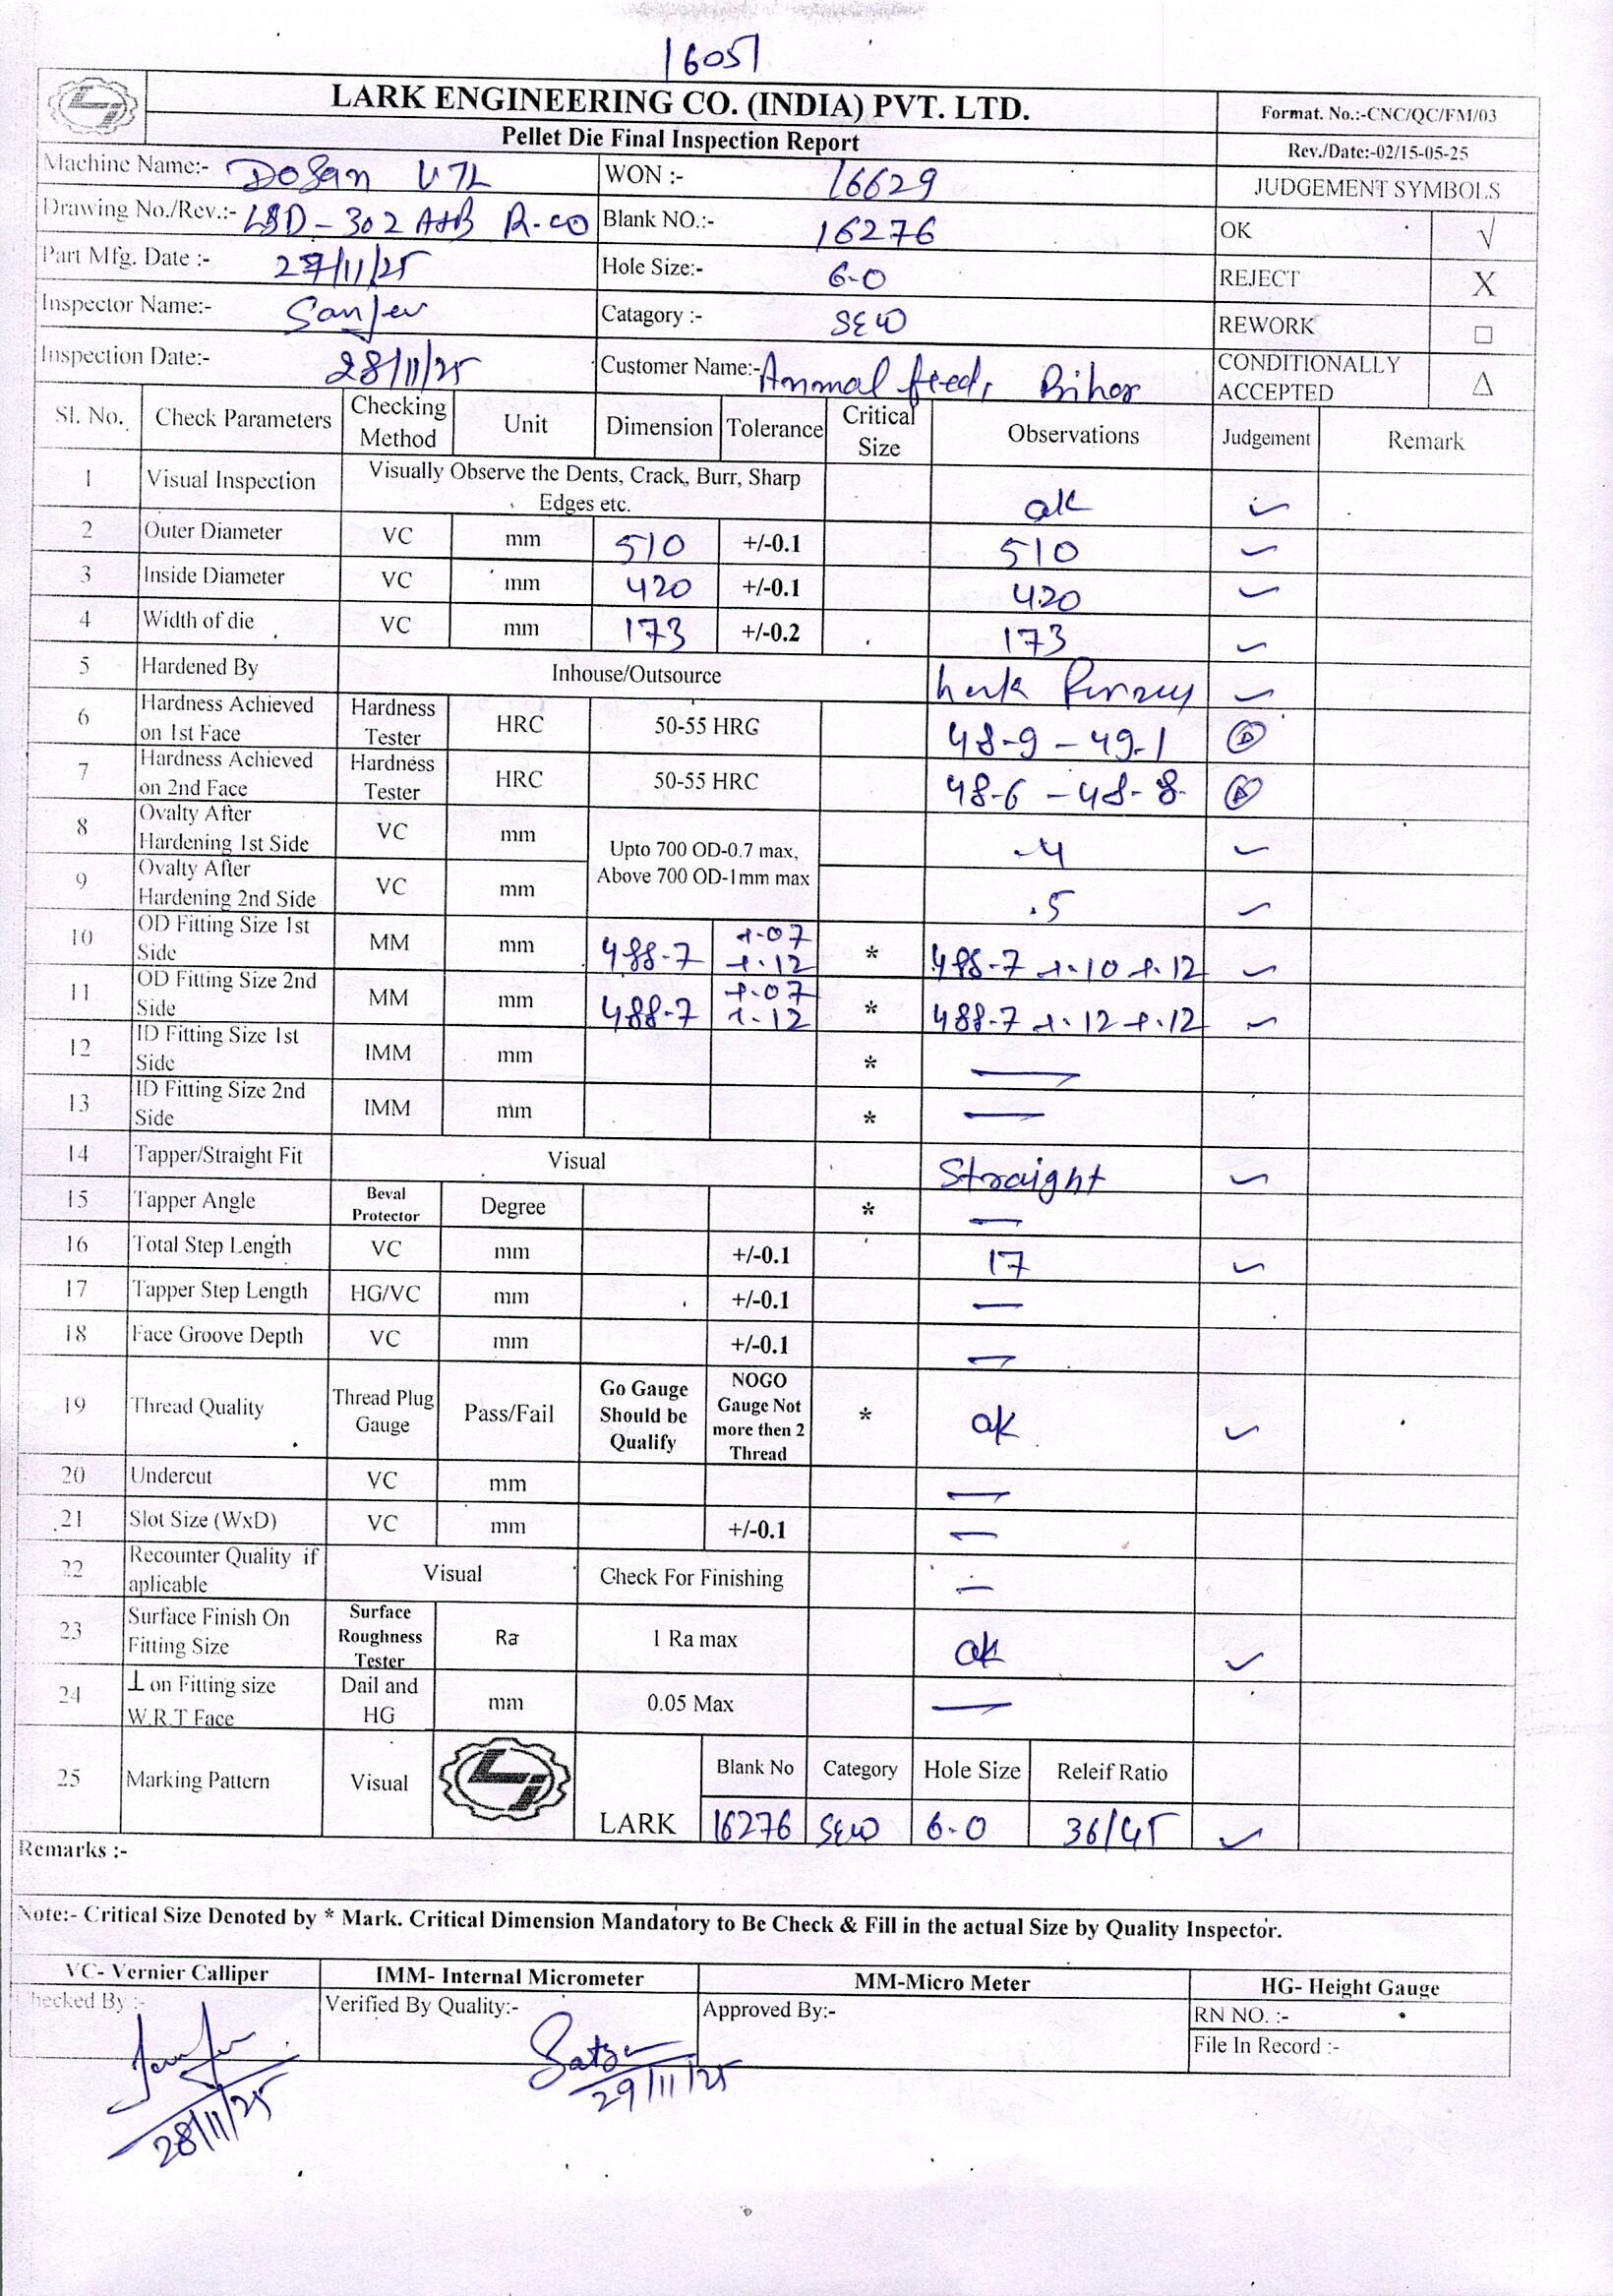 16051
LARK ENGINEERING CO. (INDIA) PVT. LTD.
Format. No.:-CNC/QC/FM/03
Pellet Die Final Inspection Report
Rev./Date:-02/15-05-25
Machine Name:- Dosan V7L WON :- 16629 JUDGEMENT SYMBOLS
Drawing No./Rev.:- LSD-302 A+B R-00 Blank NO.:- 16276 OK √
Part Mfg. Date :- 27/11/25 Hole Size:- 6.0 REJECT X
Inspector Name:- Sanjev Catagory :- SEW REWORK □
Inspection Date:- 28/11/25 Customer Name:- Animal feed, Bihar CONDITIONALLY ACCEPTED △
Sl. No. Check Parameters Checking Method Unit Dimension Tolerance Critical Size Observations Judgement Remark
1 Visual Inspection Visually Observe the Dents, Crack, Burr, Sharp Edges etc. ok ✓
2 Outer Diameter VC mm 510 +/-0.1 510 ✓
3 Inside Diameter VC mm 420 +/-0.1 420 ✓
4 Width of die VC mm 173 +/-0.2 173 ✓
5 Hardened By Inhouse/Outsource ✓
6 Hardness Achieved on 1st Face Hardness Tester HRC 50-55 HRC 48-9 - 49-1 △
7 Hardness Achieved on 2nd Face Hardness Tester HRC 50-55 HRC 48-6 - 48-8 △
8 Ovalty After Hardening 1st Side VC mm Upto 700 OD-0.7 max, Above 700 OD-1mm max .4 ✓
9 Ovalty After Hardening 2nd Side VC mm .5 ✓
10 OD Fitting Size 1st Side MM mm 488-7 +.07 +.12 * 488-7 +.10 +.12 ✓
11 OD Fitting Size 2nd Side MM mm 488-7 +.07 +.12 * 488-7 +.12 +.12 ✓
12 ID Fitting Size 1st Side IMM mm * —
13 ID Fitting Size 2nd Side IMM mm * —
14 Tapper/Straight Fit Visual Straight ✓
15 Tapper Angle Beval Protector Degree * —
16 Total Step Length VC mm +/-0.1 17 ✓
17 Tapper Step Length HG/VC mm +/-0.1 —
18 Face Groove Depth VC mm +/-0.1 —
19 Thread Quality Thread Plug Gauge Pass/Fail Go Gauge Should be Qualify NOGO Gauge Not more then 2 Thread * ok ✓
20 Undercut VC mm —
21 Slot Size (WxD) VC mm +/-0.1 —
22 Recounter Quality if aplicable Visual Check For Finishing —
23 Surface Finish On Fitting Size Surface Roughness Tester Ra 1 Ra max ok ✓
24 ⊥ on Fitting size W.R.T Face Dail and HG mm 0.05 Max —
25 Marking Pattern Visual LARK Blank No Category Hole Size Releif Ratio
16276 SEW 6.0 36/45 ✓
Remarks :-
Note:- Critical Size Denoted by * Mark. Critical Dimension Mandatory to Be Check & Fill in the actual Size by Quality Inspector.
VC- Vernier Calliper IMM- Internal Micrometer MM-Micro Meter HG- Height Gauge
Checked By :- Verified By Quality:- Approved By:- RN NO. :-
File In Record :-
28/11/25 29/11/25